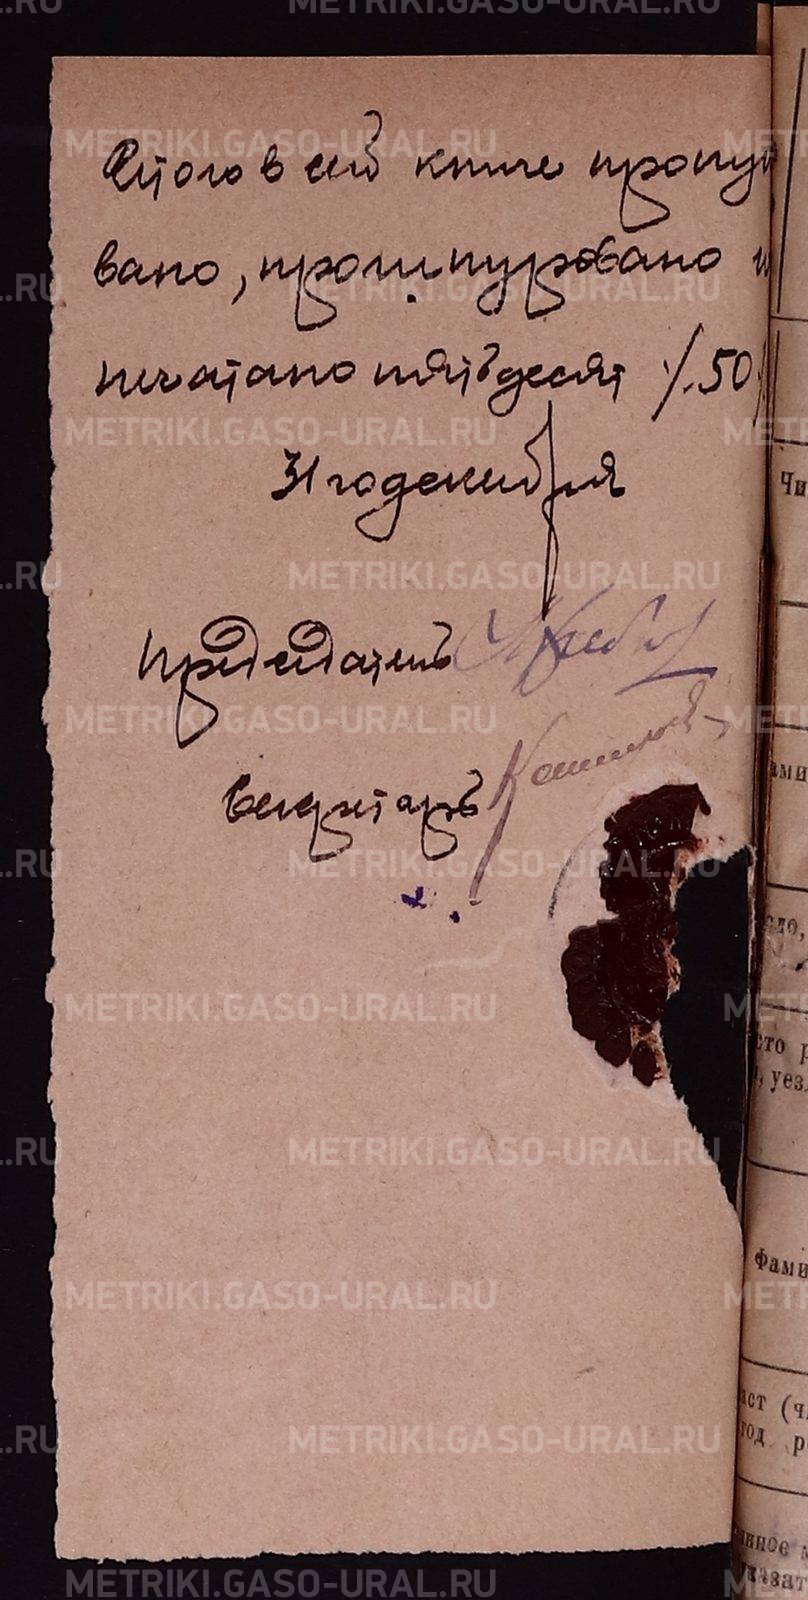 Итого в сей книге прону
вано, прошнуровано и
печатано пятьдесят /.50/
31 го декабря
Председатель
Секретарь
Чи
ами
сло,
сто р
уез
Фами
аст (ч
год р
нное м
указат
METRIKI.GASO-URAL.RU